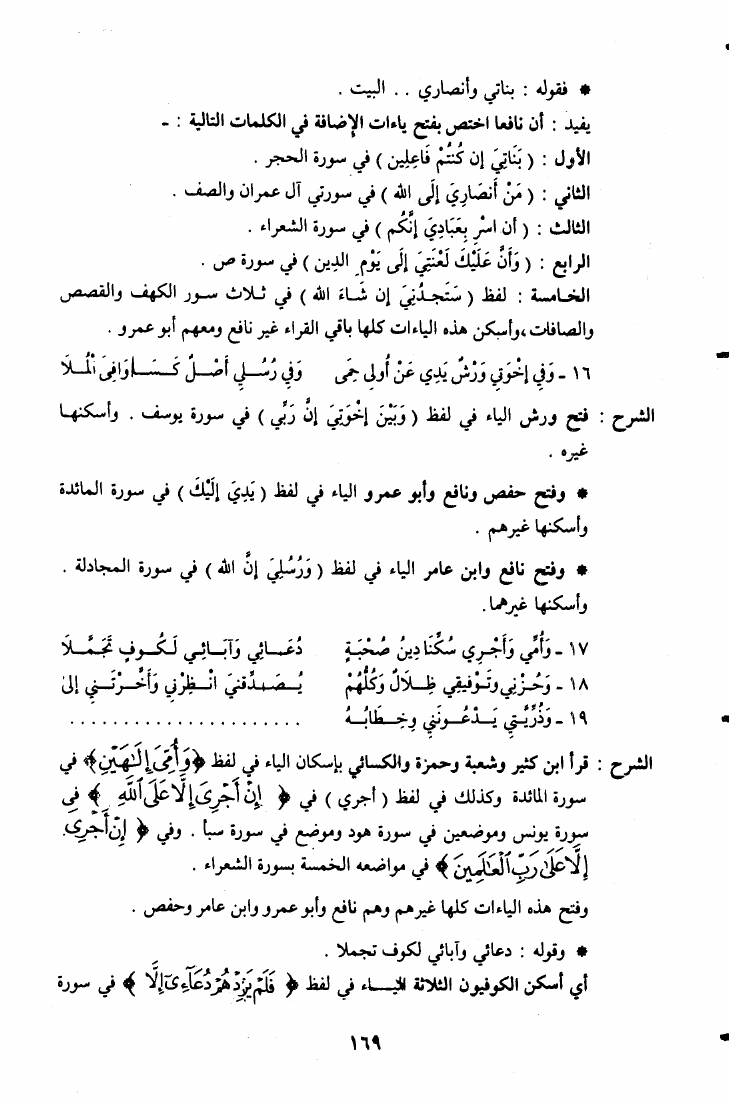 * فقوله : بناتي وأنصاري . . البيت .
يفيد : أن نافعا اختص بفتح ياءات الإضافة في الكلمات التالية : -
الأول : ( بَنَاتِيَ إن كُنتُمْ فَاعِلِين ) في سورة الحجر .
الثاني : ( مَنْ أَنصَارِيَ إلَى الله ) في سورتي آل عمران والصف .
الثالث : ( أن اسْرِ بِعَبَادِيَ إنَّكُم ) في سورة الشعراء .
الرابع : ( وَأَنَّ عَلَيْكَ لَعْنَتِيَ إلَى يَوْمِ الدِين ) في سورة ص .
الخامسة : لفظ ( سَتَجدُنِيَ إن شَاءَ الله ) في ثلاث سور الكهف والقصص
والصافات، وأسكن هذه الياءات كلها باقي القراء غير نافع ومعهم أبو عمرو .
١٦ - وَفِي إخْوَتِي وَرْشٌ يَدِي عَنْ أُولِي حِمًى وَفِي رُسُلِي أَصْلٌ كَسَا وَافِيَ الْمُلَا
الشرح : فتح ورش الياء في لفظ ( وَبَيْنَ إخْوَتِيَ إنَّ رَبِّي ) في سورة يوسف . وأسكنها
غيره .
* وفتح حفص ونافع وأبو عمرو الياء في لفظ ( يَدِيَ إلَيْكَ ) في سورة المائدة
وأسكنها غيرهم .
* وفتح نافع وابن عامر الياء في لفظ ( وَرُسُلِيَ إنَّ الله ) في سورة المجادلة .
وأسكنها غيرهما.
١٧ - وَأُمِّي وَأَجْرِي سُكِّنَا دِينُ صُحْبَةٍ دُعَائِي وَآبَائِي لَكُوفٍ تَجَمَّلَا
١٨ - وَحُزْنِي وَتَوْفِيقِي ظِلَالٌ وَكُلُّهُمْ يُصَدِّقْنِيَ انْظِرْنِي وَأَخَّرْتَنِي إلَى
١٩ - وَذُرِّيَّتِي يَدْعُونَنِي وَخِطَابُهُ . . . . . . . . . . . . . . . . . . . .
الشرح : قرأ ابن كثير وشعبة وحمزة والكسائي بإسكان الياء في لفظ ﴿وَأُمِّىَ إِلَٰهَيْنِ﴾ في
سورة المائدة وكذلك في لفظ ( أجري ) في ﴿ إِنْ أَجْرِىَ إِلَّا عَلَى ٱللَّهِ ﴾ في
سورة يونس وموضعين في سورة هود وموضع في سورة سبأ . وفي ﴿ إِنْ أَجْرِىَ
إِلَّا عَلَىٰ رَبِّ ٱلْعَٰلَمِينَ ﴾ في مواضعه الخمسة بسورة الشعراء .
وفتح هذه الياءات كلها غيرهم وهم نافع وأبو عمرو وابن عامر وحفص .
* وقوله : دعائي وآبائي لكوف تجملا .
أي أسكن الكوفيون الثلاثة الياء في لفظ ﴿ فَلَمْ يَزِدْهُمْ دُعَآءِىٓ إِلَّا ﴾ في سورة
١٦٩